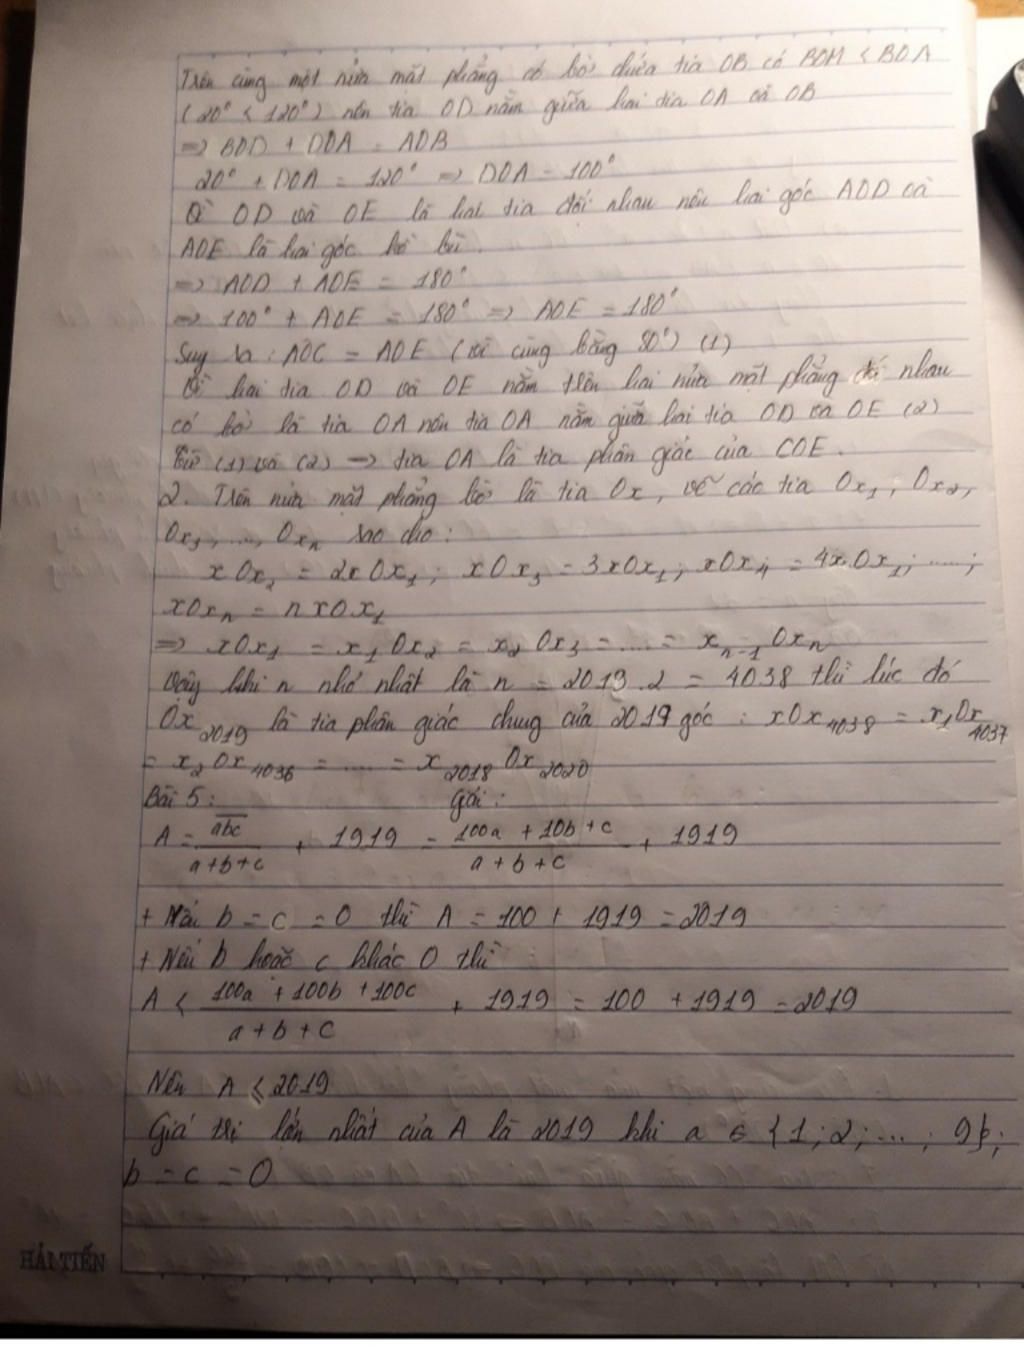 Trên cùng một nửa mặt phẳng có bờ chứa tia OB có BOM < BOA
(20° < 120°) nên tia OD nằm giữa hai tia OA và OB
=> BOD + DOA = AOB
20° + DOA = 120° => DOA = 100°
Vì OD và OE là hai tia đối nhau nên hai góc AOD và
AOE là hai góc kề bù.
=> AOD + AOE = 180°
=> 100° + AOE = 180° => AOE = 180°
Suy ra : AOC = AOE (vì cùng bằng 80°) (1)
Vì hai tia OD và OE nằm trên hai nửa mặt phẳng đối nhau
có bờ là tia OA nên tia OA nằm giữa hai tia OD và OE (2)
Từ (1) và (2) => tia OA là tia phân giác của COE.
2. Trên nửa mặt phẳng bờ là tia Ox, vẽ các tia Ox₁, Ox₂,
Ox₃, ...., Oxₙ sao cho :
xOx₂ = 2xOx₁ ; xOx₃ = 3xOx₁ ; xOx₄ = 4xOx₁ ; ..... ;
xOxₙ = n xOx₁
=> xOx₁ = x₁Ox₂ = x₂Ox₃ = .... = xₙ₋₁Oxₙ
Vậy khi n nhỏ nhất là n = 2019.2 = 4038 thì lúc đó
Ox₂₀₁₉ là tia phân giác chung của 2019 góc : xOx₄₀₃₈ = x₁Ox₄₀₃₇
= x₂Ox₄₀₃₆ = .... = x₂₀₁₈Ox₂₀₂₀
Bài 5: Giải :
A = abc / a+b+c + 1919 = 100a + 10b + c / a + b + c + 1919
+ Nếu b = c = 0 thì A = 100 + 1919 = 2019
+ Nếu b hoặc c khác 0 thì
A < 100a + 100b + 100c / a + b + c + 1919 = 100 + 1919 = 2019
Nên A ≤ 2019
Giá trị lớn nhất của A là 2019 khi a ∈ {1;2;...; 9};
b = c = 0
HẢI TIẾN